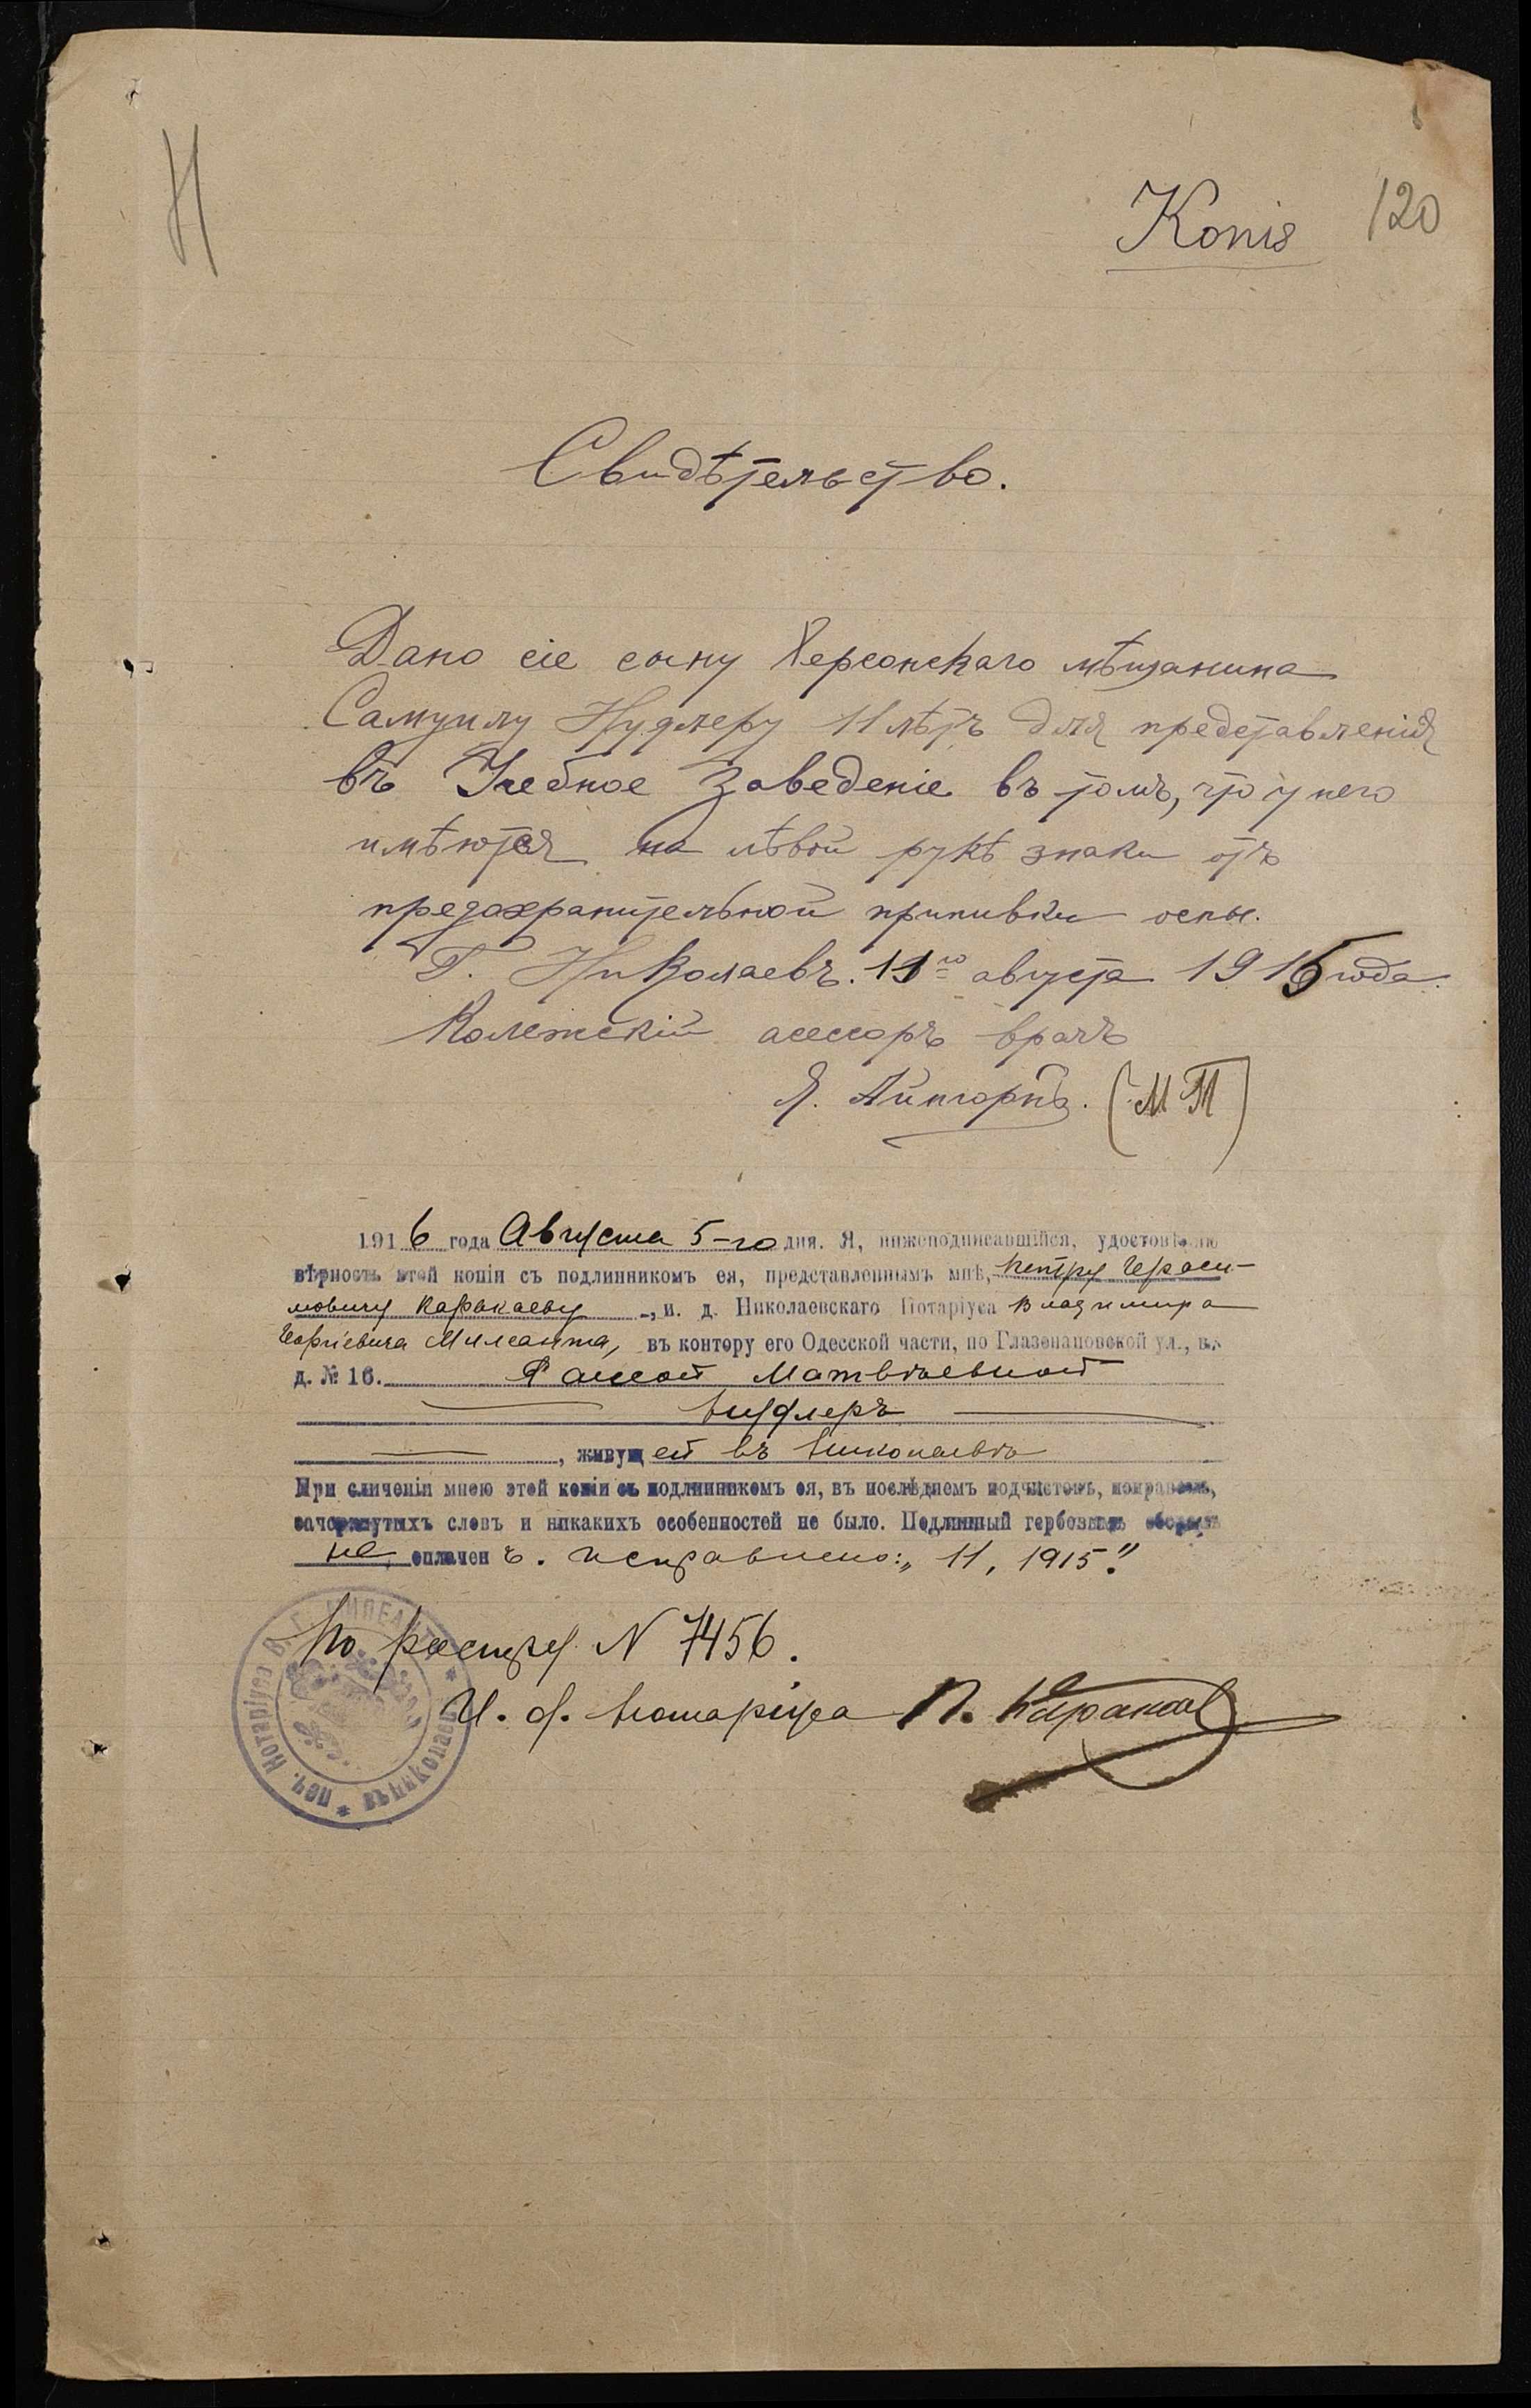 Н
Копія 120
Свидѣтельство.
Дано сіе сыну Херсонскаго мѣщанина
Самуилу Нудлеру 11 лѣтъ для представленія
въ Учебное Заведеніе въ томъ, что у него
имѣются на лѣвой рукѣ знаки отъ
предохранительной прививки оспы.
Г. Николаевъ. 11го августа 1915 года.
Колежскій асессоръ врачъ
Я. Айнгорнъ. (М П)
1916 года Августа 5-го дня. Я, нижеподписавшійся, удостовѣряю
вѣрность этой копіи съ подлинникомъ ея, представленнымъ мнѣ, Петру Гераси-
мовичу, и. д. Николаевскаго Нотаріуса Владимира
Георгіевича Милеанта, въ контору его Одесской части, по Глазенаповской ул., въ
д. № 16. Матвѣевной
Нудлеръ
, живущей въ Николаевѣ
При сличеніи мною этой копіи съ подлинникомъ ея, въ послѣднемъ подчистокъ, поправокъ,
зачеркнутыхъ словъ и никакихъ особенностей не было. Подлинный гербовымъ сборомъ
не оплаченъ. Исправлено: „11, 1915".
По реестру N 7456.
И. д. Нотаріуса П.
Печ. Нотаріуса В. Г. Милеанта * Николаевъ *